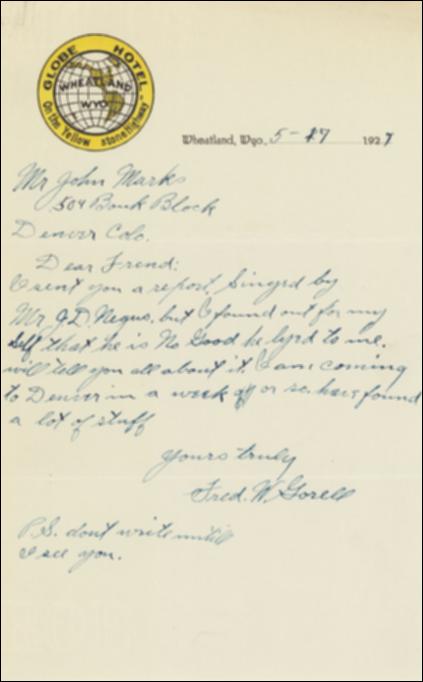 GLOBE HOTEL
WHEATLAND
WYO
On the Yellowstone Highway
Wheatland, Wyo., 5-17 1927
Mr John Marks
504 Bank Block
Denver Colo.
Dear Frend:
I sent you a report Singed by
Mr J.D. Negus. but I found out for my
self that he is No Good he lyed to me.
will tell you all about it. I am coming
to Denver in a week or so. have found
a lot of stuff
yours truly
Fred. W. Gorell
P.S. dont write untill
I see you.